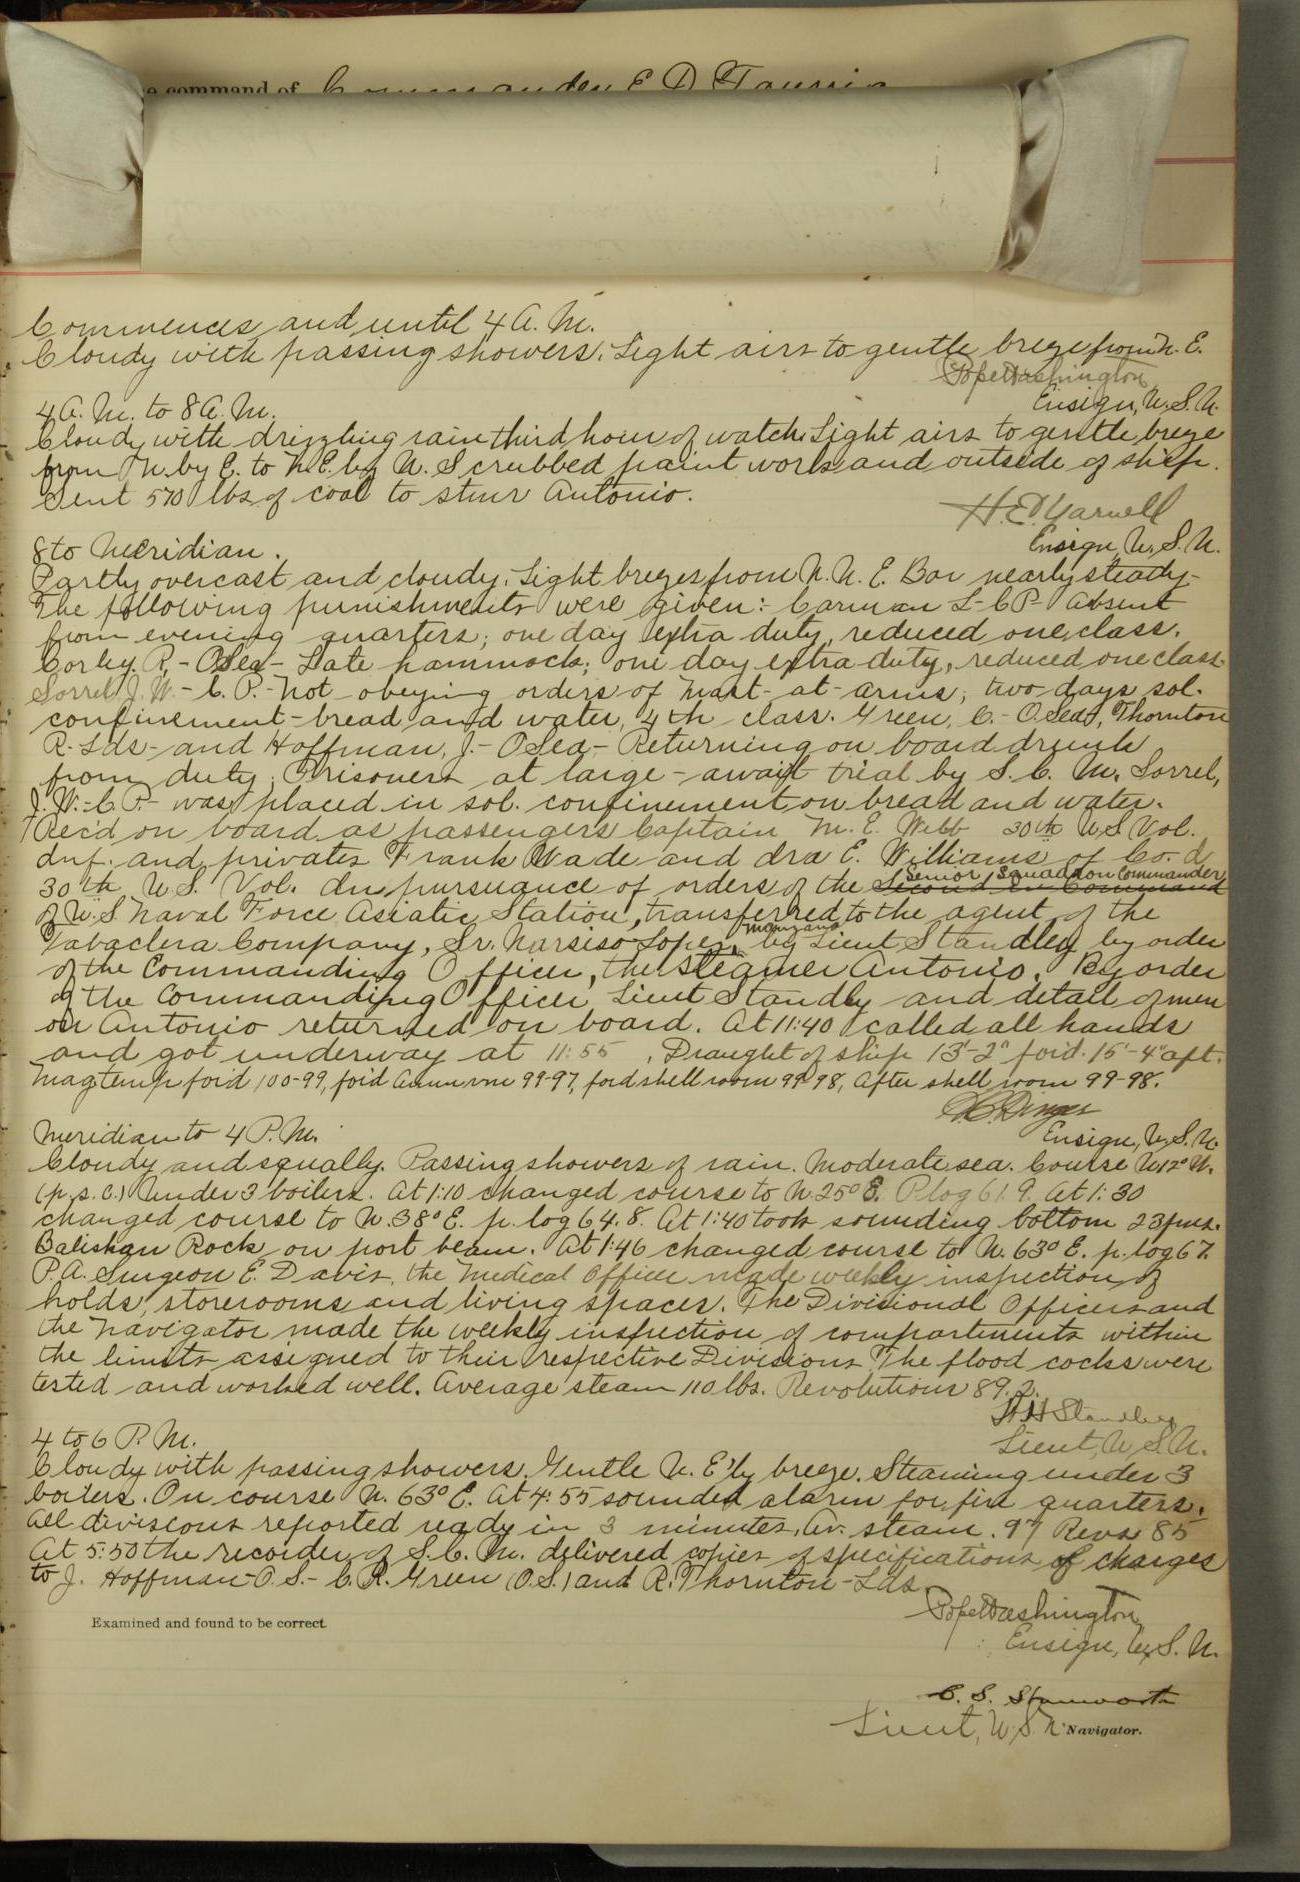 command of Commander E D Taussig
Commences and until 4 A.M.
Cloudy with passing showers. Light airs to gentle breeze from N. E.
Pope Washington
Ensign, U.S.N.
4 A.M. to 8 A.M.
Cloudy with drizzling rain third hour of watch. Light airs to gentle breeze
from N. by E. to N.E. by N. Scrubbed paint work and outside of ship.
Sent 570 lbs of coal to stmr Antonio.
H. E. Yarnell
Ensign, U.S.N.
8 to Meridian.
Partly overcast and cloudy. Light breezes from N. N. E. Bar nearly steady-
The following punishments were given:- Carman L-C P- Absent
from evening quarters; one day extra duty, reduced one class.
Corley, R.- OSea- Late hammock; one day extra duty, reduced one class.
Sorrel, J. W.- C. P.- Not obeying orders of Mast-at-arms; two days sol.
confinement-bread and water, 4th class. Green, C.- OSea, Thornton
R- Lds- and Hoffman, J.- OSea- Returning on board drunk
from duty; Prisoners at large- await trial by S. C. M. Sorrel,
J. W.- C. P.- was placed in sol. confinement on bread and water.
Rec'd on board as passengers Captain M. E. Webb 30th U S Vol.
Inf. and privates Frank Wade and Ira E. Williams of Co. I
Senior Squadron Commander
30th U.S. Vol. In pursuance of orders of the Second in Command
of U.S. Naval Force Asiatic Station, transferred to the agent of the
Manzano
Tabaclera Company, Sr. Narsiso Lopez, by Lieut Standley by order
of the Commanding Officer, the steamer Antonio. By order
of the Commanding Officer Lieut Standly and detail of men
on Antonio returned on board. At 11:40 called all hands
and got underway at 11:55. Draught of ship 13'-2" for'd. 15'-4" aft.
Mag. temp for'd 100-99, for'd Amm. rm 99-97, for'd shell room 99-98, After shell room 99-98.
Dinger
Ensign, U.S.N.
Meridian to 4 P.M.
Cloudy and squally. Passing showers of rain. Moderate sea. Course N12°W.
(p.s.c.) Under 3 boilers. At 1:10 changed course to N.25°E. P. log 61.9. At 1:30
changed course to N.38°E. p. log 64.8. At 1:40 took sounding bottom 23 fms.
Baliskan Rock on port beam. At 1:46 changed course to N. 63° E. p. log 67.
P.A. Surgeon E. Davis, the Medical Officer made weekly inspection of
holds, storerooms and living spaces. The Divisional Officers and
the Navigator made the weekly inspection of compartments within
the limits assigned to their respective Divisions. The flood cocks were
tested and worked well. Average steam 110 lbs. Revolutions 89.2.
W H Standley
Lieut, U.S.N.
4 to 6 P.M.
Cloudy with passing showers. Gentle N. E'ly breeze. Steaming under 3
boilers. On course N. 63° E. At 4:55 sounded alarm for fire quarters.
All divisions reported ready in 3 minutes. Av. steam. 97 Revs 85
At 5:50 the recorder of S.C.M. delivered copies of specifications of charges
to J. Hoffman-O.S.- C. R. Green (O.S.) and R. Thornton-Lds
Pope Washington
Ensign, U.S.N.
Examined and found to be correct.
C. S. Stanworth
Lieut, U.S.N. Navigator.